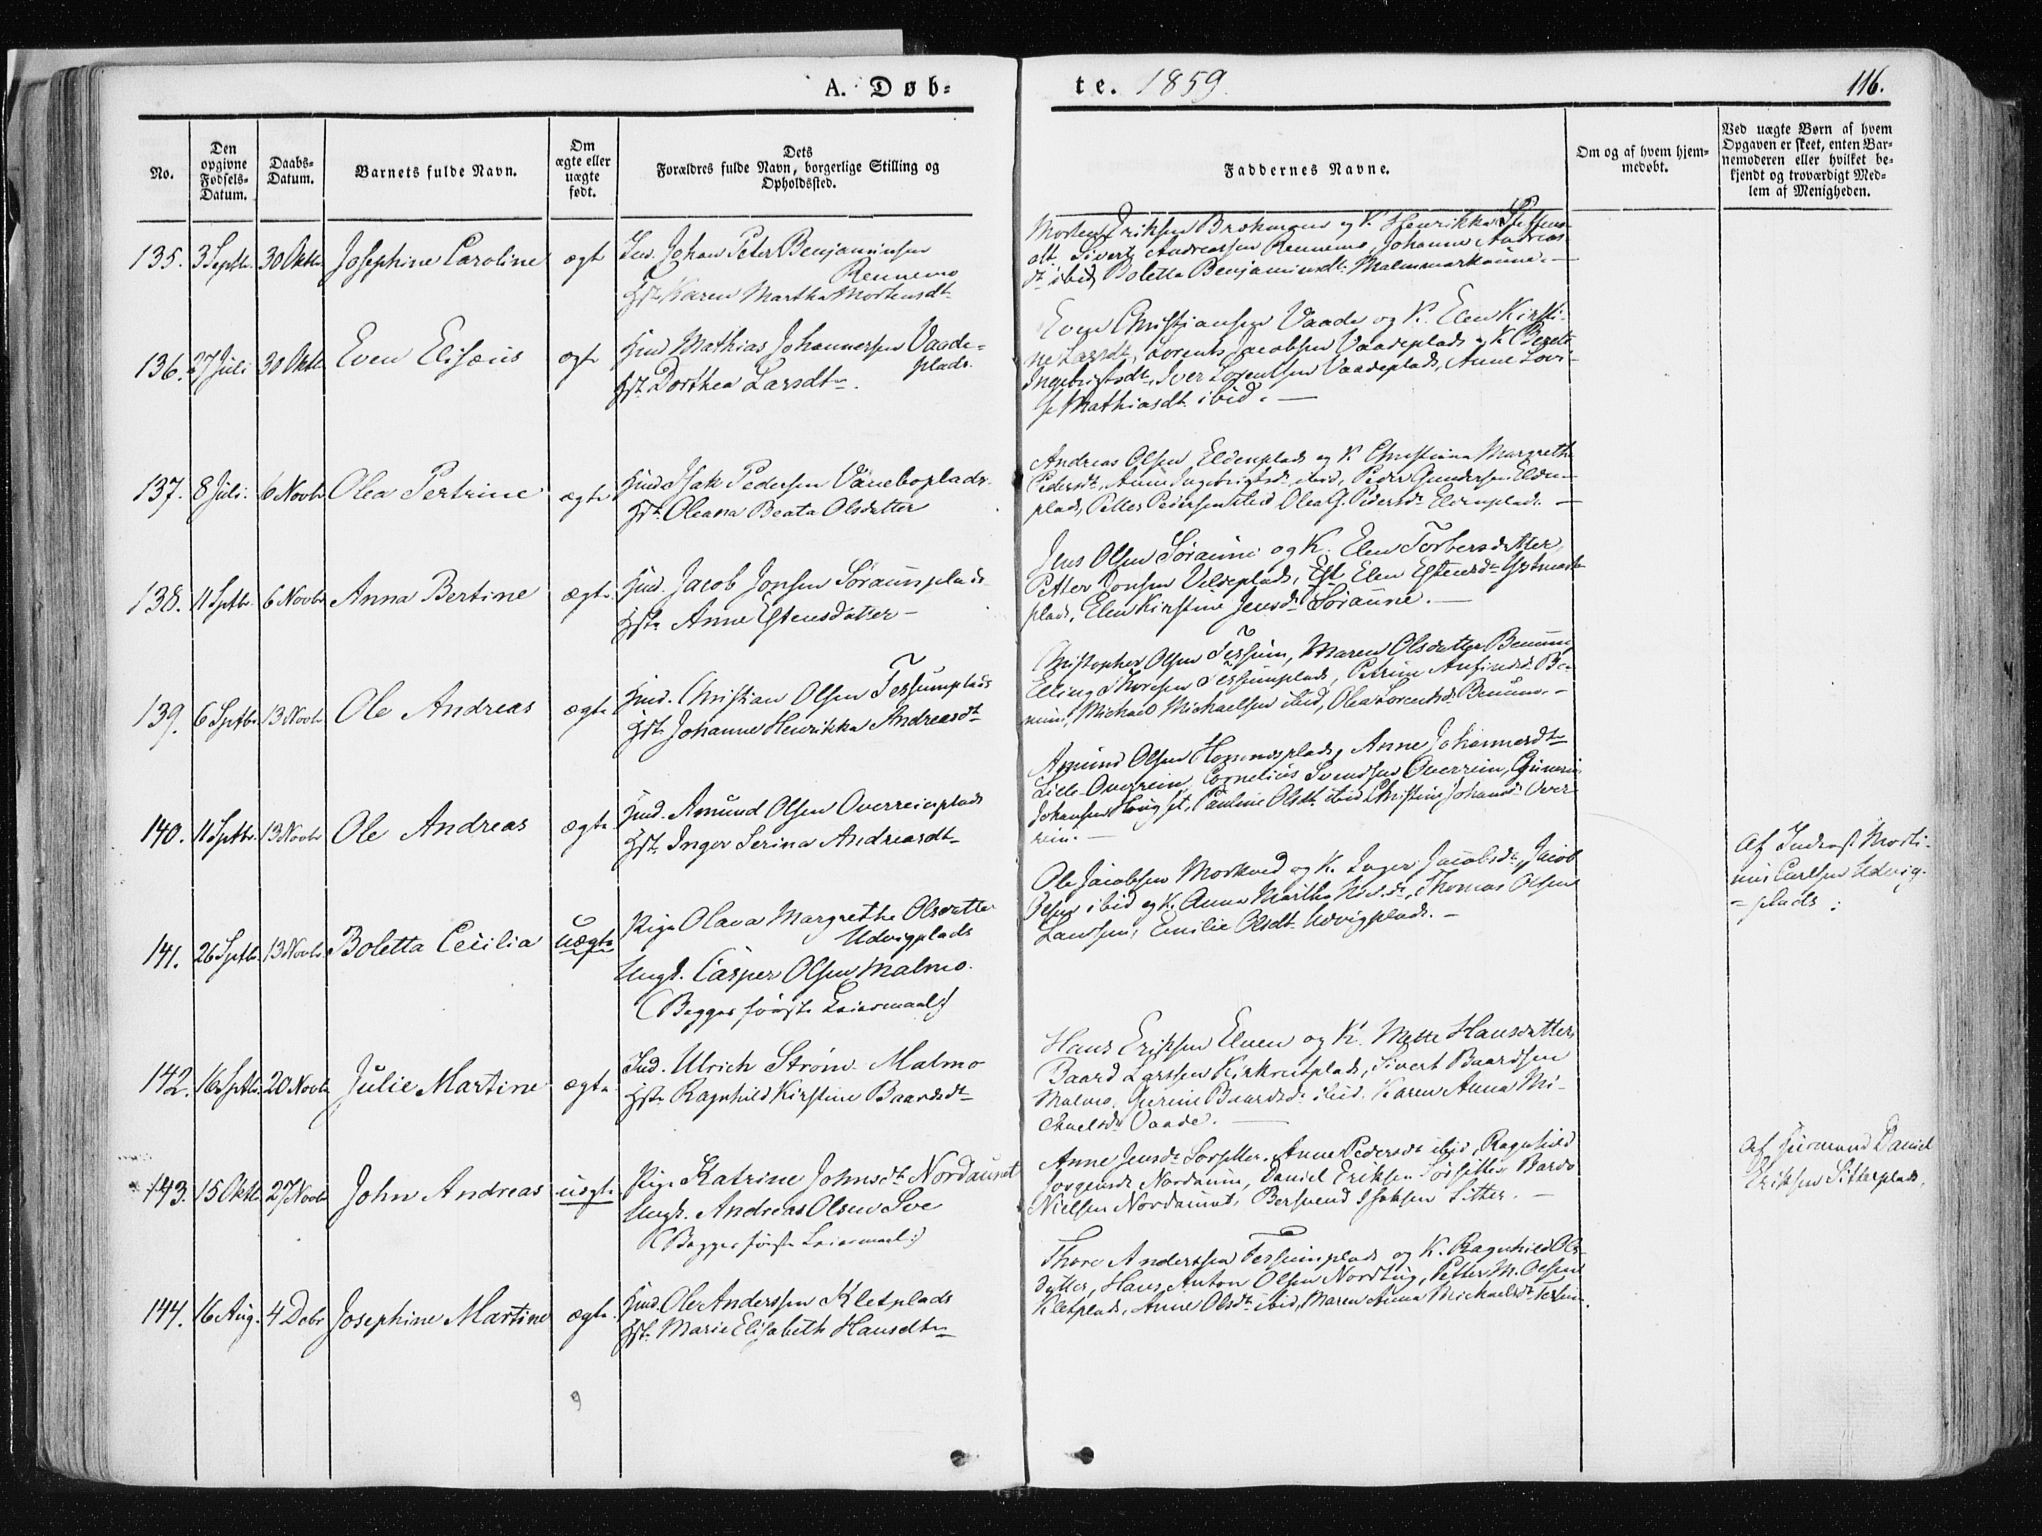 A. Døb-
te. 1859.
116.
No.
Den opgivne Fødsels-Datum.
Daabs-Datum.
Barnets fulde Navn.
Om ægte eller uægte født.
Dets Forældres fulde Navn, borgerlige Stilling og Opholdssted.
Faddernes Navne.
Om og af hvem hjemmedøbt.
Ved uægte Børn af hvem Opgaven er skeet, enten Barnemoderen eller hvilket bekjendt og troværdigt Medlem af Menigheden.
135. 3 Septbr. 30 Oktbr Josephine Caroline ægte
Johan Peter Benjaminsen
Rennemo
Hst. Karen Martha Mortensdtr
Morten Eriksen Brekmoen og K. Henrikka Steffens-
dtr. Sivert Andreassen Rennemo, Johanna Andreas-
dt ibid, Boletta Benjaminsdt. Malmmarkaune. —
136. 27 Juli 30 Oktbr Even Elisæus ægte
Hmd. Mathias Johannessen Vaade-
plads.
Hst. Dorthea Larsdtr.
Even Christiansen Vaade og K. Elen Kirsti-
ne Larsdt, Lorents Jacobsen Vaadeplads og K. Berete
Ingebrigtsdtr, Iver Lorentsen Vaadeplads, Anne Lovi-
se Mathiasdt ibid. —
137. 8 Juli. 6 Novbr Olea Petrine ægte
Hmd. Isak Pedersen Vaneboplads.
Hst. Oleana Beata Olsdatter
Andreas Olsen Eldenplads og K. Christiana Margrethe
Pedersdt, Anne Ingebrigtsdt ibid, Peder Gundersen Elden-
plads, Petter Pedersen ibid Olea G. Pedersdt Eldenplads. —
138. 11 Septbr. 6 Novbr Anna Bertine ægte
Hmd. Jacob Jonsen Søraunplads
Hst. Anne Estensdatter —
Jens Olsen Søraune og K. Elen Torbersdatter,
Petter Jonsen Veldeplads, Elen Estensdt
plads, Elen Kirstine Jensdt Søraune. —
139. 6 Septbr. 13 Novbr Ole Andreas ægte
Hmd. Christian Olsen Tessumplads
Hst. Johanne Henrikka Andreasdt
Christopher Olsen Tessum, Maren Olsdatter Benum,
Elling Thoresen Tessumplads, Petrine Anfindsdt Be-
num, Michael Michaelsen ibid, Olea Lorentsdt Benum. —
140. 11 Septbr. 13 Novbr Ole Andreas ægte
Hmd. Amund Olsen Overreinplads
Hst. Inger Serina Andreasdt
Amund Olsen Homnesplads, Anne Johannesdtr
Lille-Overrein, Cornelius Svendsen Overrein,
Johansen Haugset, Pauline Olsdt ibid Christine Johansdt Over-
rein. —
141. 26 Septbr. 13 Novbr Boletta Cecilia uægte
Pige Olava Margrethe Olsdatter
Udvigplads
Ungk. Casper Olsen Malmo.
(Begges første Leiermaal:)
Ole Jacobsen Morkved og K. Inger Jacobsdt, Jacob
Olsen ibid og K. Anna Martha Nilsdt, Thomas Olsen
Emilie Olsdt Udvigplads. —
Af Inderst Morti-
nus Carlsen Udvig-
plads.
142. 16 Septbr. 20 Novbr Julie Martine ægte
Ind. Ulrich Strøm Malmo
Hst. Ragnhild Kirstine Baardsdt
Hans Eriksen Elven og K. Mette Hansdatter,
Baard Larssen Kirkreitplads, Sivert Baardsen
Malmo, Serine Baardsdt ibid. Karen Anna Mi-
chaelsdt Vaade. —
143. 15 Oktbr 27 Novbr John Andreas uægte
Pige Katrine Johnsdt Nordaunet
Ungk. Andreas Olsen Sve
(Begges første Leiermaal:)
Anne Jensdt Sørsitter. Anne Pedersdt ibid, Ragnhild
Jørgensdt Nordaune, Daniel Eriksen Sørsitter Bardo
Nielsen Nordaunet, Bersvend Isaksen Sitter. —
Af Huusmand Daniel
Eriksen Sitterplads.
144. 16 Aug. 4 Debr Josephine Martine ægte
Hmd. Ole Anderssen Kletplads
Hst. Marie Elisabeth Hansdtr
Thore Anderssen Tessumplads og K. Ragnhild Ols-
datter, Hans Anton Olsen Nordtug, Petter M. Olsen
Kletplads, Anne Olsdt ibid, Maren Anna Michaelsdt Tessum.
9